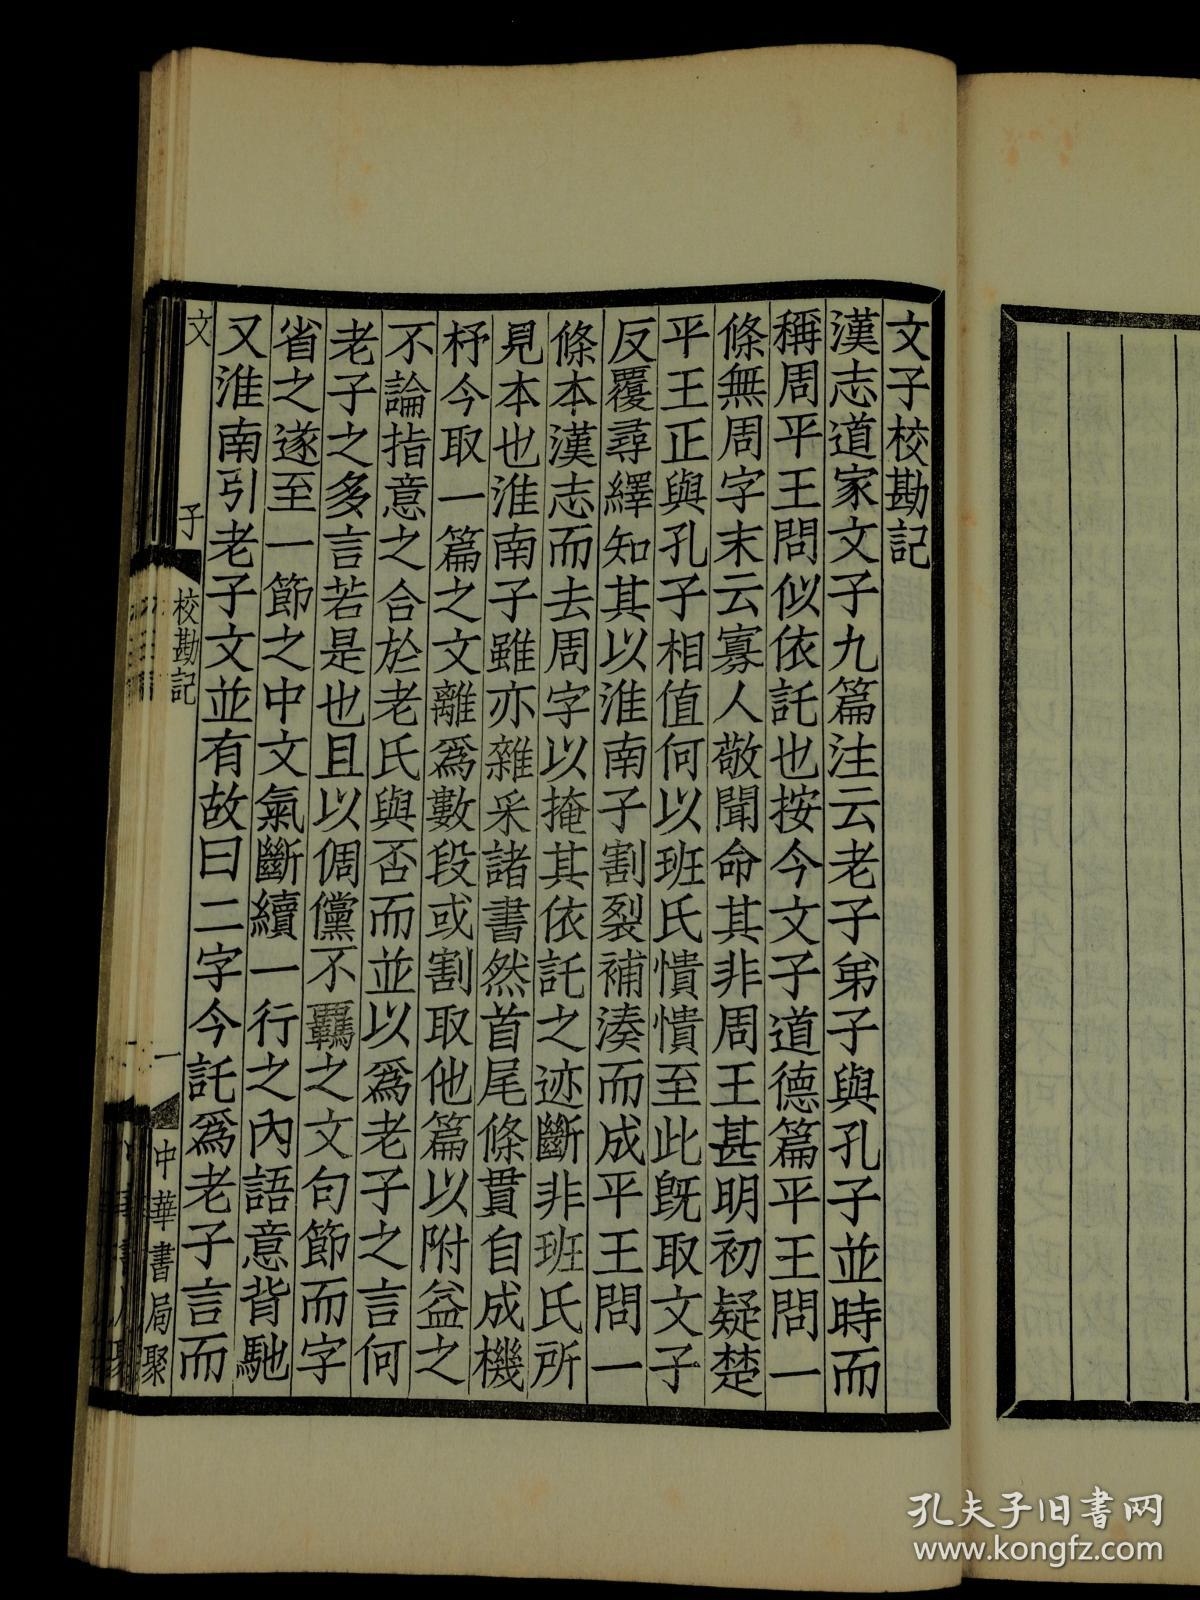 文子校勘記
漢志道家文子九篇注云老子弟子與孔子並時而
稱周平王問似依託也按今文子道德篇平王問一
條無周字末云寡人敬聞命其非周王甚明初疑楚
平王正與孔子相值何以班氏憒憒至此旣取文子
反覆尋繹知其以淮南子割裂補湊而成平王問一
條本漢志而去周字以掩其依託之迹斷非班氏所
見本也淮南子雖亦雜采諸書然首尾條貫自成機
杼今取一篇之文離爲數段或割取他篇以附益之
不論指意之合於老氏與否而並以爲老子之言何
老子之多言若是也且以倜儻不羈之文句節而字
省之遂至一節之中文氣斷續一行之內語意背馳
又淮南引老子文並有故曰二字今託爲老子言而
文 子 校勘記 一 中華書局聚
孔夫子旧书网
www.kongfz.com